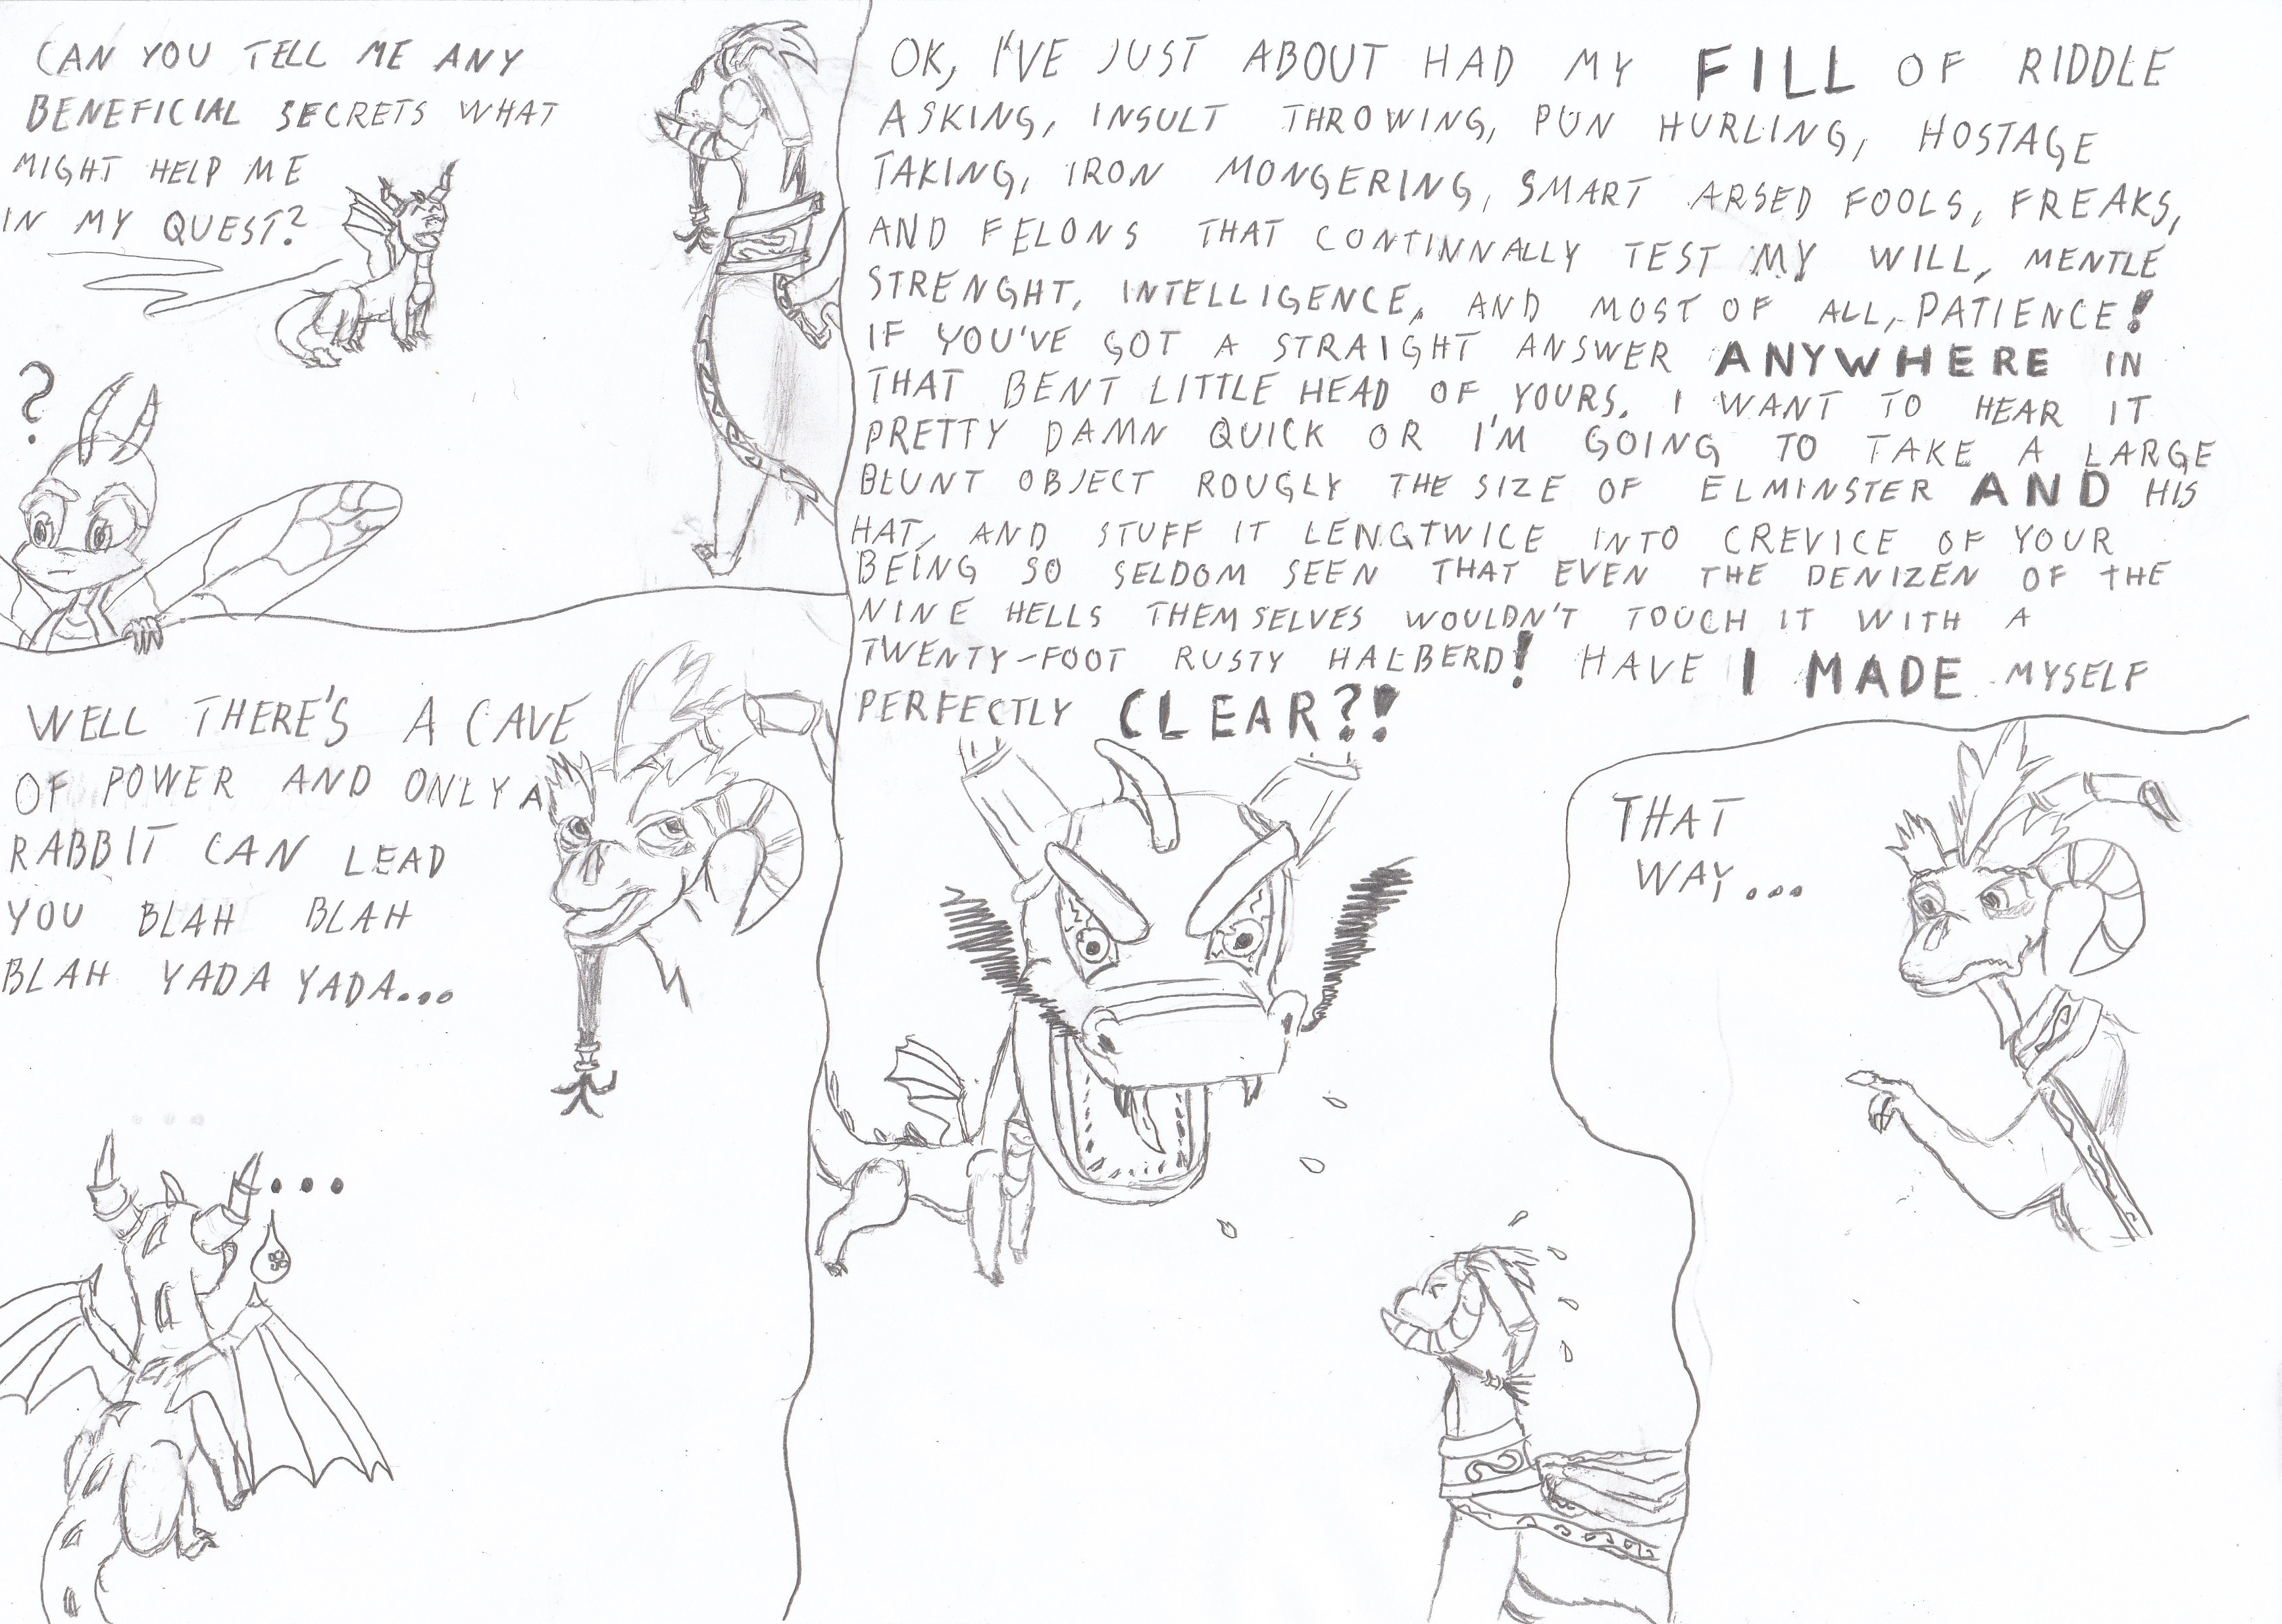 CAN YOU TELL ME ANY
BENEFICIAL SECRETS WHAT
MIGHT HELP ME
IN MY QUEST?
?
WELL THERE'S A CAVE
OF POWER AND ONLY A
RABBIT CAN LEAD
YOU BLAH BLAH
BLAH YADA YADA...
...
OK, I'VE JUST ABOUT HAD MY FILL OF RIDDLE
ASKING, INSULT THROWING, PUN HURLING, HOSTAGE
TAKING, IRON MONGERING, SMART ARSED FOOLS, FREAKS,
AND FELONS THAT CONTINNALLY TEST MY WILL, MENTLE
STRENGHT, INTELLIGENCE, AND MOST OF ALL, PATIENCE!
IF YOU'VE GOT A STRAIGHT ANSWER ANYWHERE IN
THAT BENT LITTLE HEAD OF YOURS. I WANT TO HEAR IT
PRETTY DAMN QUICK OR I'M GOING TO TAKE A LARGE
BLUNT OBJECT ROUGLY THE SIZE OF ELMINSTER AND HIS
HAT, AND STUFF IT LENGTWICE INTO CREVICE OF YOUR
BEING SO SELDOM SEEN THAT EVEN THE DENIZEN OF THE
NINE HELLS THEMSELVES WOULDN'T TOUCH IT WITH A
TWENTY-FOOT RUSTY HALBERD! HAVE I MADE MYSELF
PERFECTLY CLEAR?!
THAT
WAY...